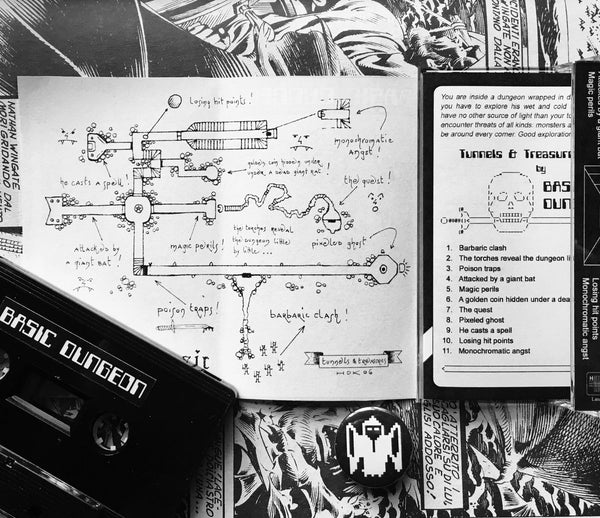 Losing hit points!
monochromatic
angst!
he casts a spell!
golden coin hidden under
under a dead giant rat!
the quest!
the torches reveal
the dungeon little
by little...
pixeled ghost
attacked by
a giant bat!
magic perils!
poison traps!
barbaric clash!
tunnels & treasures
HDK 06
BASIC DUNGEON
You are inside a dungeon wrapped in d
you have to explore his wet and cold
have no other source of light than your to
encounter threats of all kinds: monsters a
be around every corner. Good exploration
Tunnels & Treasur
by
BAS
DUN
1. Barbaric clash
2. The torches reveal the dungeon li
3. Poison traps
4. Attacked by a giant bat
5. Magic perils
6. A golden coin hidden under a dea
7. The quest
8. Pixeled ghost
9. He casts a spell
10. Losing hit points
11. Monochromatic angst
Magic perils
Losing hit points
Monochromatic angst
NATHAN WINGATE
GRIDANDO
DALL'
UCCIDETE ERAN
WINGATE
DALLA
ATTERRITO
SU DI LUI
CALORE E
ADDOSSO!